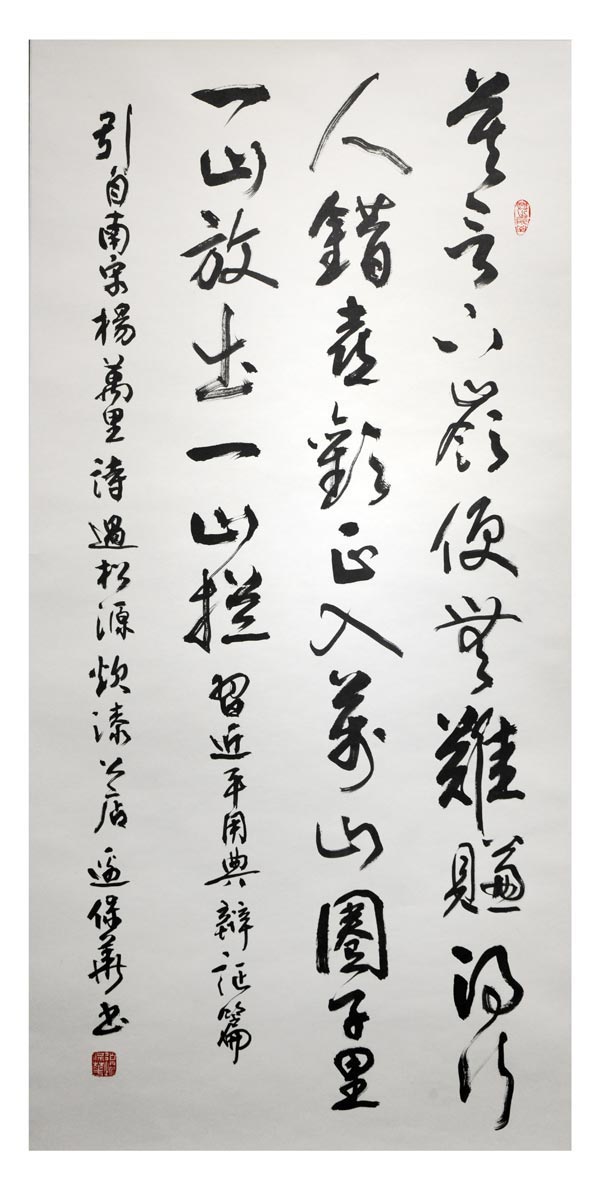 莫言下嶺便無難賺得行
人錯喜歡正入萬山圈子里
一山放出一山攔 習近平用典辯证篇
引自南宋楊萬里詩過松源炊漆公店 邊保華書